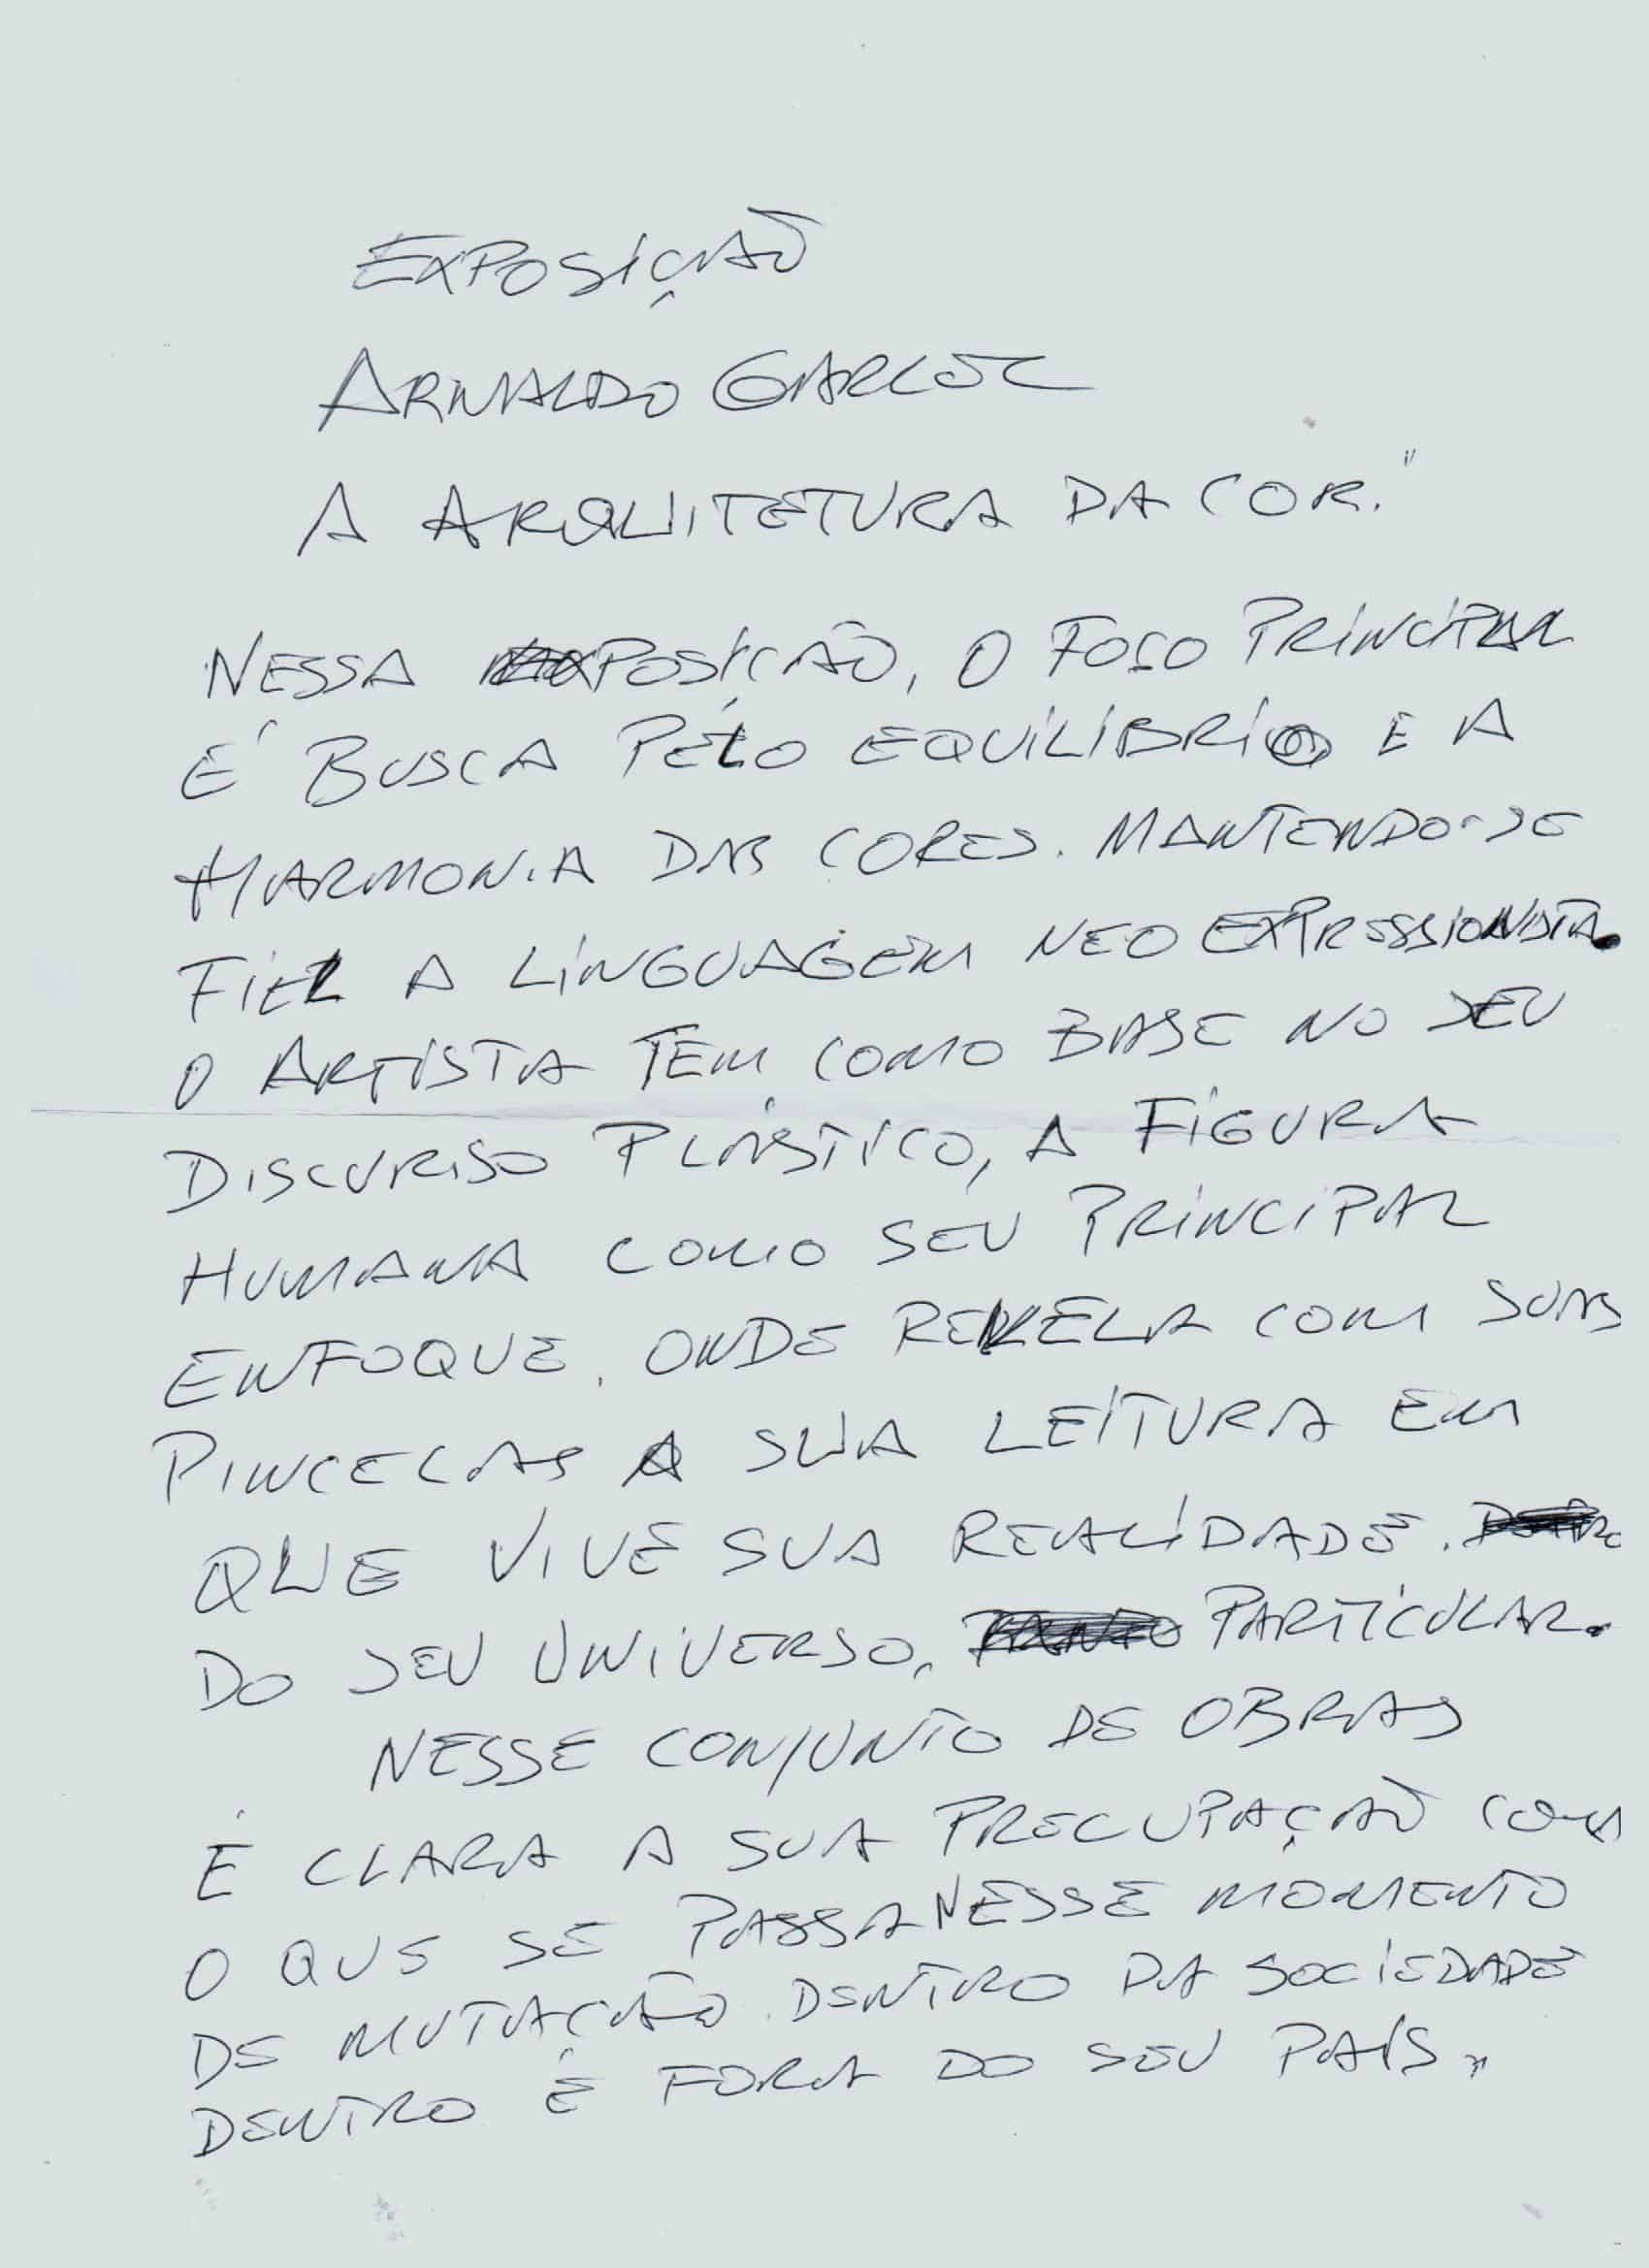 EXPOSIÇÃO
ARNALDO GARCEZ
A ARQUITETURA DA COR."
NESSA EXPOSIÇÃO, O FOCO PRINCIPAL
É BUSCA PELO EQUILÍBRIO E A
HARMONIA DAS CORES. MANTENDO-SE
FIEL A LINGUAGEM NEO EXPRESSIONISTA.
O ARTISTA TEM COMO BASE NO SEU
DISCURSO PLÁSTICO, A FIGURA
HUMANA COMO SEU PRINCIPAL
ENFOQUE, ONDE REVELA COM SUAS
PINCELAS A SUA LEITURA EM
QUE VIVE SUA REALIDADE.
DO SEU UNIVERSO, PARTICULAR.
NESSE CONJUNTO DE OBRAS
É CLARA A SUA PRECUPAÇÃO COM
O QUE SE PASSA NESSE MOMENTO
DE MUTAÇÃO. DENTRO DA SOCIEDADE
DENTRO E FORA DO SEU PAÍS.